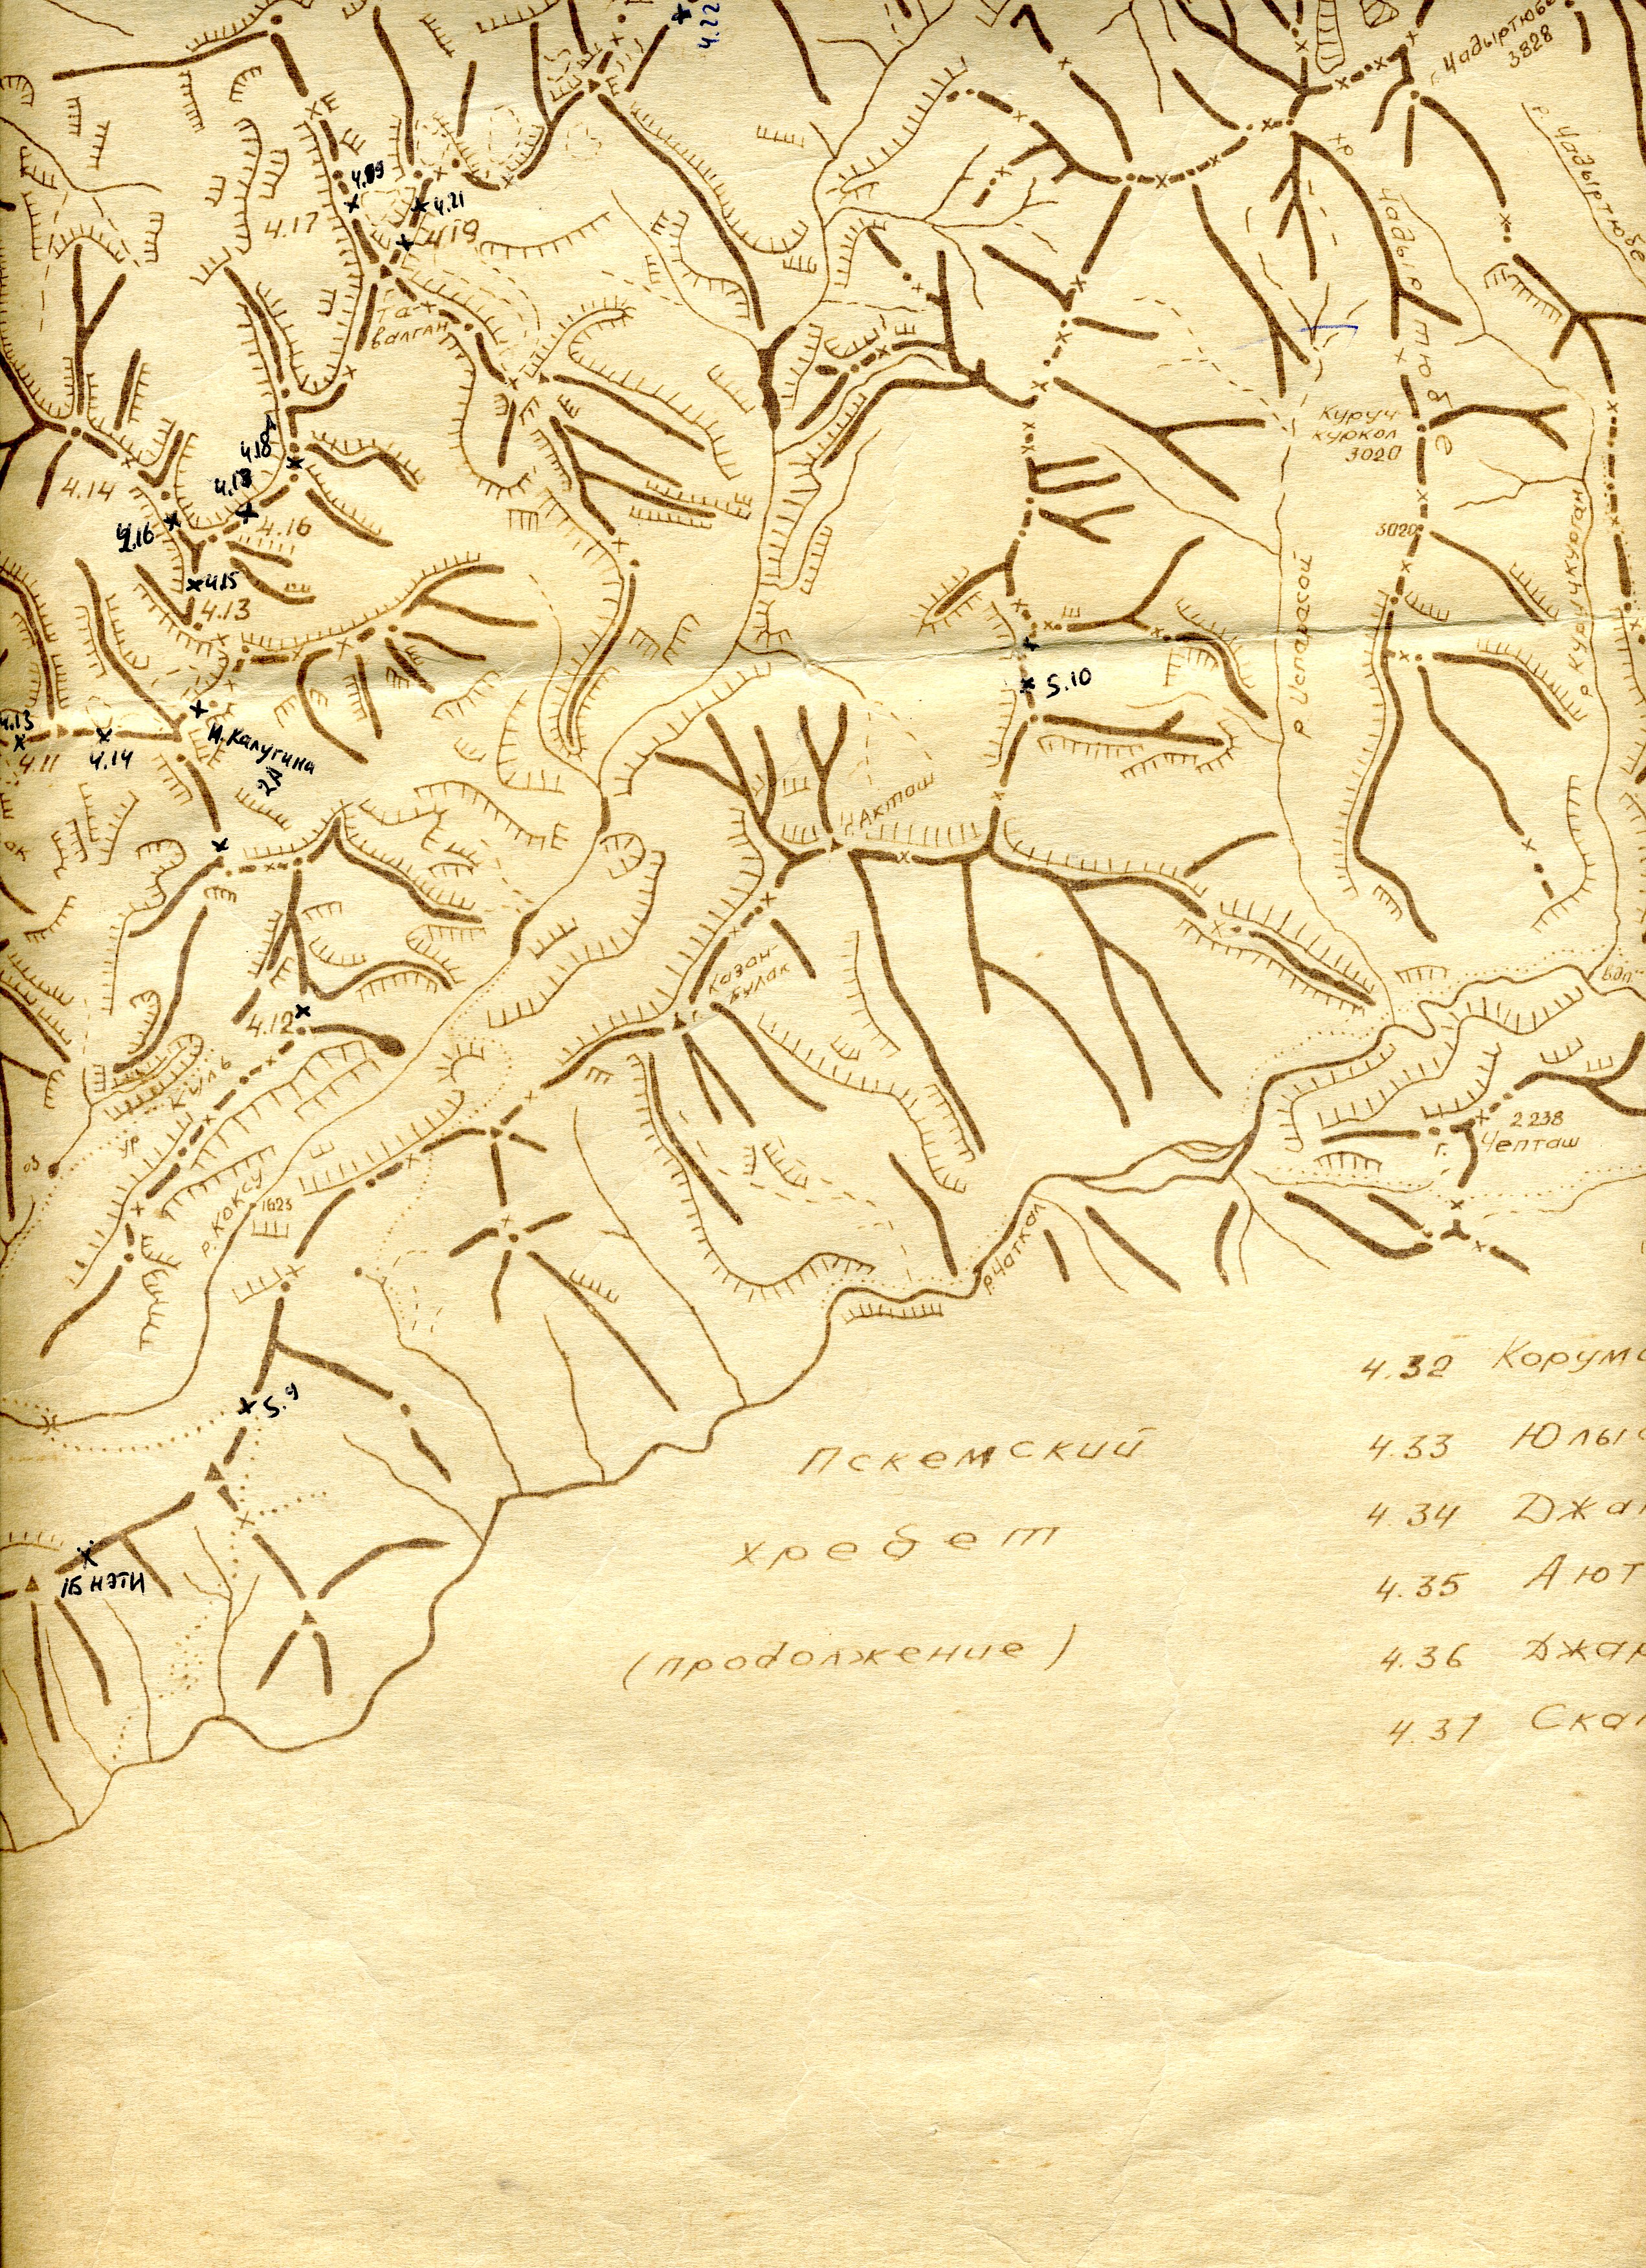 4.22
г. Чадыртюбе
3828
р. Чадыртюбе
хр
Чадыр
тюбе
4.17
4.21
4.19
Та-
валган
Куруч
куркол
3020
4.18А
4.18
4.14
4.16
4.16
4.15
4.13
3020
5.10
4.13
4.11
4.14
Н. Калугина
2А
г. Акташ
Казан-
булак
г.
4.12
куль
ур
оз
р. Коксу
1623
р Чаткал
вдп
2238
г. Чепташ
5.9
1Б НЭТИ
Пскемский
хребет
(продолжение)
4.32 Корум
4.33 Юлы
4.34 Джа
4.35 Ают
4.36 Джар
4.37 Ска